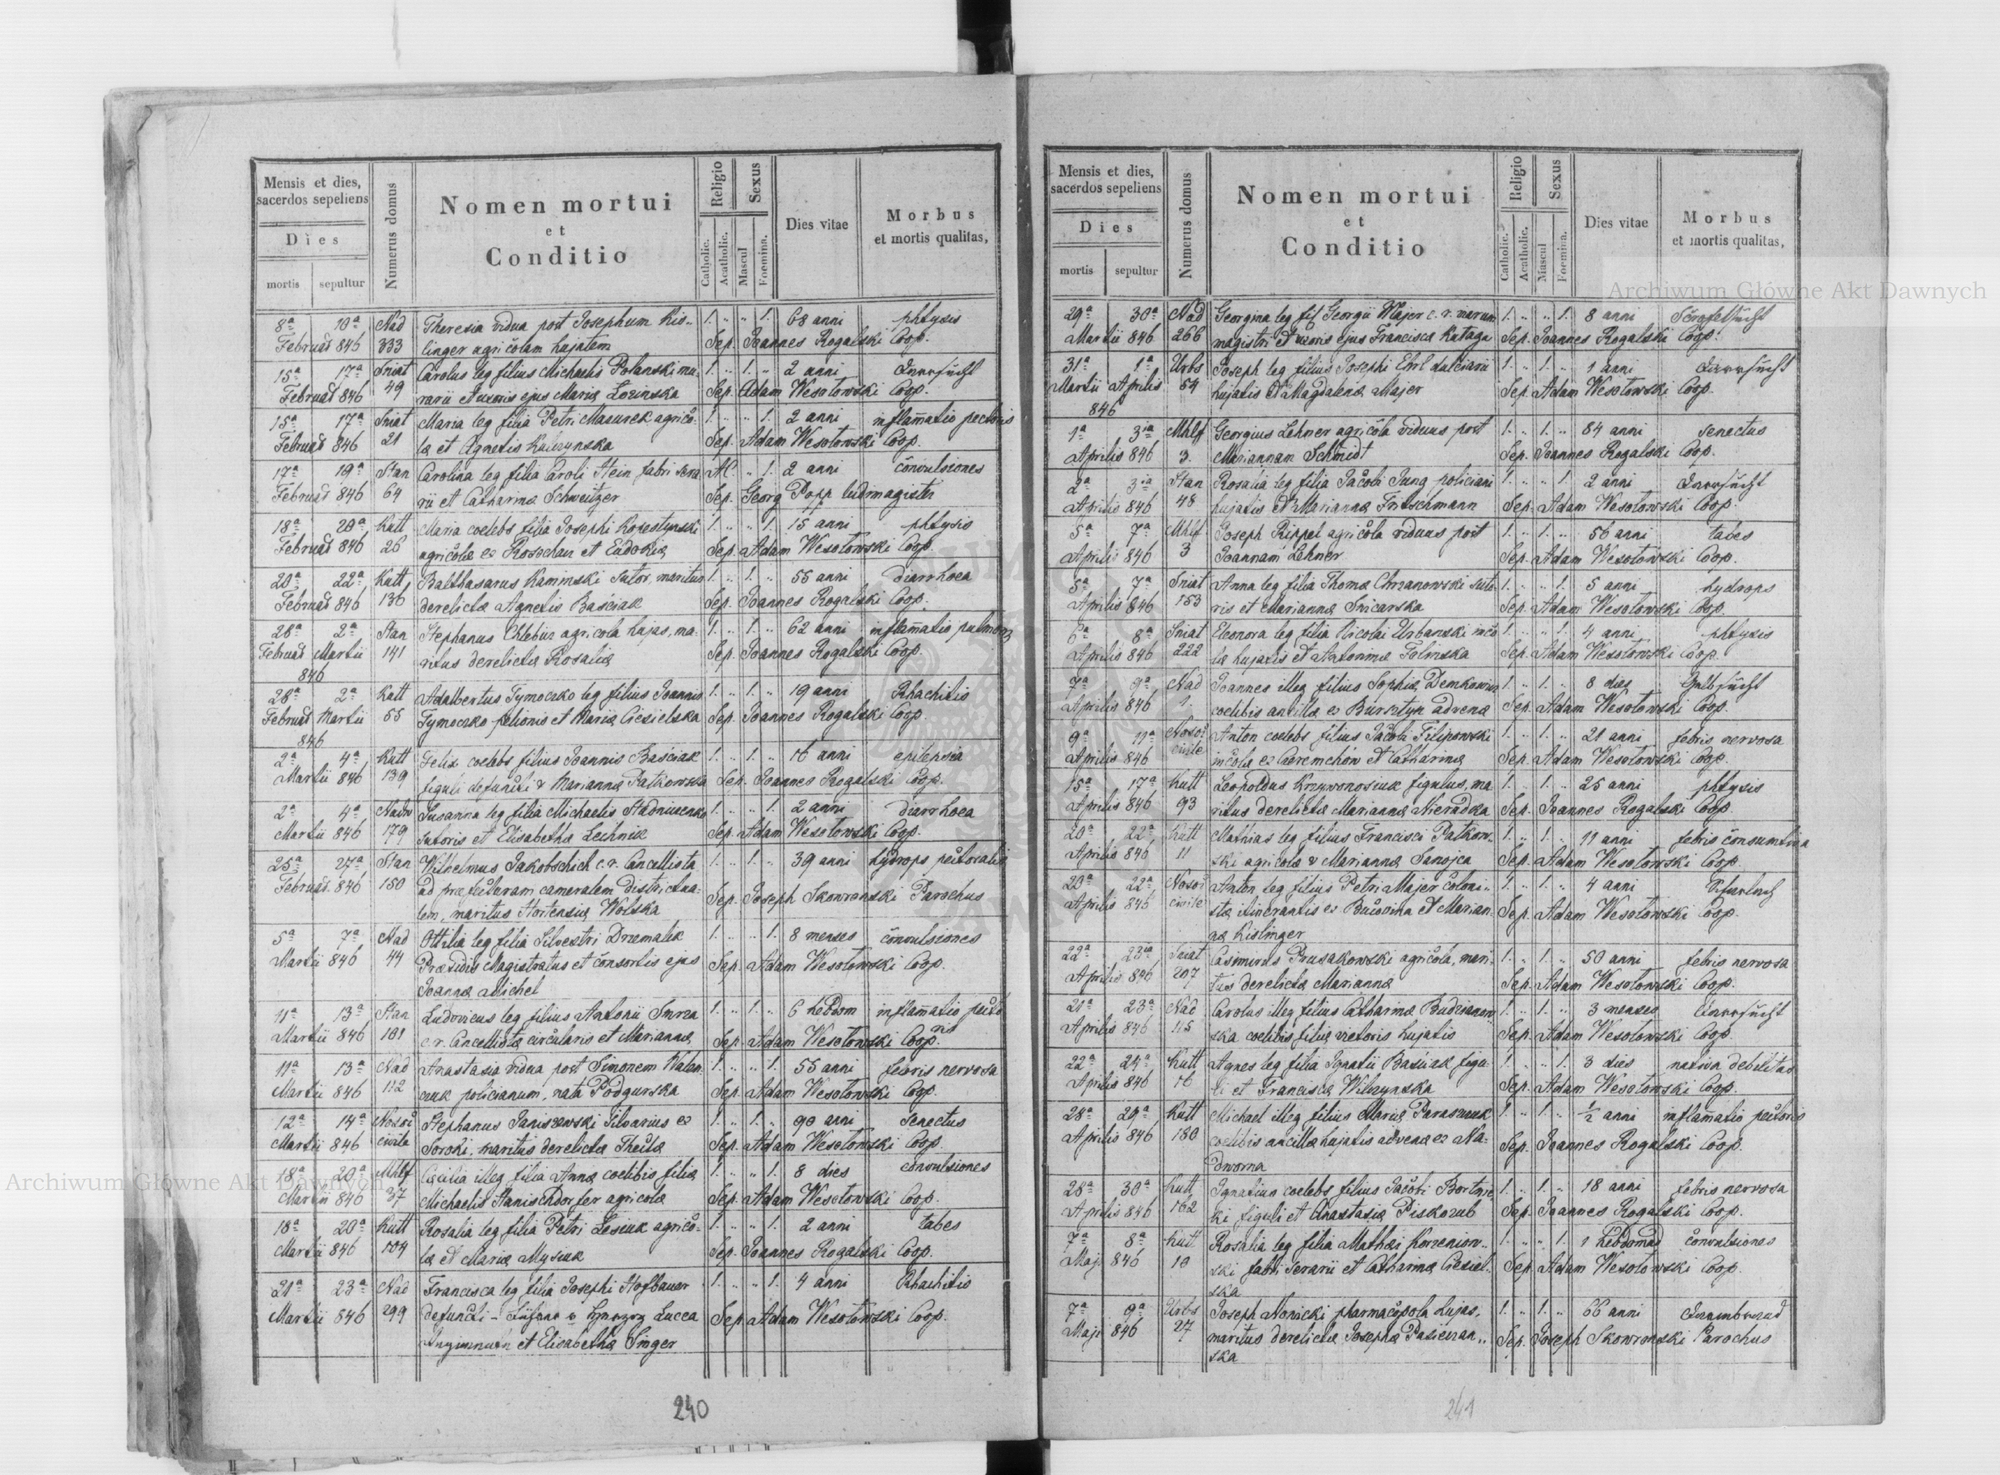 Mensis et dies, sacerdos sepeliens
Dies
mortis sepultur
Numerus domus
Nomen mortui
et
Conditio
Religio
Catholic.
Acatholic.
Sexus
Mascul
Foemina.
Dies vitae
Morbus
et mortis qualitas,
8ª 10ª Nad Theresia vidua post Josephum Kis- 1. „ „ 1. 68 anni phtysis
Februar 846 333 linger agricolam hujatem Sep. Joannes Rogalski Coop.
15ª 17ª Sniat Carolus leg filius Michaelis Polanski mu- 1. „ 1. „ 2 anni
Februar 846 49 rarii et uxoris ejus Maria Lozinska Sep. Adam Wesołowski Coop.
15ª 17ª Sniat Maria leg filia Petri Mazurek agrico- 1. „ „ 1. 2 anni inflamatio pectoris
Februar 846 21 la et Agnetis Sep. Adam Wesołowski Coop.
17ª 19ª Stan Carolina leg filia Caroli Stein fabri AC. „ 1. 2 anni convulsiones
Februar 846 64 rii et Catharina Schweitzer Sep. Georg Popp ludimagister
18ª 20ª Kutt Maria coelebs filia Josephi 1. „ „ 1. 15 anni phtysis
Februar 846 26 agricola ex et Eudokia Sep. Adam Wesołowski Coop
20ª 22ª Kutt Balthasarus Kaminski sutor, maritus 1. „ 1. „ 55 anni diarrhoea
Februar 846 136 derelicta Agnetis Baściak Sep. Joannes Rogalski Coop.
28ª 2ª Stan Stephanus agricola hujas, ma- 1. „ 1. „ 62 anni inflamatio pulmon
Februar Martii 141 ritus derelicta Rosalia Sep. Joannes Rogalski Coop.
846
28ª 2ª Kutt Adalbertus Tymoczko leg filius Joannis 1. „ 1. „ 19 anni Rhachitis
Februar Martii 55 Tymoczko pelionis et Maria Ciesielska Sep. Joannes Rogalski Coop.
846
2ª 4ª Kutt Felix coelebs filius Joannis Baściak 1. „ 1. „ 16 anni epilepsia
Martii 846 139 figuli defuncti & Marianna Patkowska Sep. Joannes Rogalski Coop.
2ª 4ª Nadw Susanna leg filia Michaelis 1. „ „ 1. 2 anni diarrhoea
Martii 846 179 sutoris et Elisabetha Sep. Adam Wesołowski Coop.
25ª 27ª Stan Wilhelmus Jakobschich c. r. Cancellista 1. „ 1. „ 39 anni hydrops pectoralis
Februar. 846 150 ad praefecturam cameralem districtua-
lem, maritus Hortensia Wolska Sep. Joseph Skowronski Parochus
5ª 7ª Nad Ottilia leg filia Silvestri Drzemalik 1. „ „ 1. 8 menses convulsiones
Martii 846 44 Praesidis Magistratus et consortis ejus Sep. Adam Wesołowski Coop.
Joanna Michel
11ª 13ª Stan Ludovicus leg filius Antonii 1. „ 1. „ 6 hebdom inflamatio pecto
Martii 846 181 c. r. Cancellista circularis et Marianna Sep. Adam Wesołowski Coop. ris
11ª 13ª Nad Anastasia vidua post Simonem 1. „ „ 1. 55 anni febris nervosa
Martii 846 112 policianum, nata Podgurska Sep. Adam Wesołowski Coop.
12ª 14ª Nosoc Stephanus Janiszewski silvarius ex 1. „ 1. „ 90 anni senectus
Martii 846 civile Soroki, maritus derelicta Thecla Sep. Adam Wesołowski Coop.
18ª 20ª Mhlf Cacilia illeg filia Anna coelibis filia 1. „ „ 1. 8 dies convulsiones
Martii 846 37 Michaelis agricola Sep. Adam Wesołowski Coop.
18ª 20ª Kutt Rosalia leg filia Petri agrico- 1. „ „ 1. 2 anni tabes
Martii 846 104 la et Maria Sep. Joannes Rogalski Coop.
21ª 23ª Nad Francisca leg filia Josephi Hofbauer 1. „ „ 1. 4 anni Rhachitis
Martii 846 299 defuncti Lucca Sep. Adam Wesołowski Coop.
et Elisabetha Singer
240
Mensis et dies, sacerdos sepeliens
Dies
mortis sepultur
Numerus domus
Nomen mortui
et
Conditio
Religio
Catholic.
Acatholic.
Sexus
Mascul
Foemina.
Dies vitae
Morbus
et mortis qualitas,
29ª 30ª Nad Georgina leg fil Georgii Majer c. r. 1. „ „ 1. 8 anni
Martii 846 266 magistri et uxoris ejus Francisca Sep. Joannes Rogalski Coop.
31ª 1ª Urbs Joseph leg filius Josephi 1. „ 1. „ 1 anni
Martii Aprilis 54 hujatis et Magdalena Majer Sep. Adam Wesołowski Coop.
846
1ª 3ia Mhlf Georgius Lehner agricola viduus post 1. „ 1. „ 84 anni senectus
Aprilis 846 3. Mariannam Schmidt Sep. Joannes Rogalski Coop.
2ª 3ia Stan Rosalia leg filia Jacobi Jung policiani 1. „ „ 1. 2 anni
Aprilis 846 48 hujatis et Marianna Fritschmann Sep. Adam Wesołowski Coop.
5ª 7ª Mhlf Joseph Rippel agricola viduus post 1. „ 1. „ 56 anni tabes
Aprilis 846 3 Joannam Lehner Sep. Adam Wesołowski Coop.
5ª 7ª Sniat Anna leg filia Thoma Chrzanowski suto- 1. „ „ 1. 5 anni hydrops
Aprilis 846 153 ris et Marianna Sep. Adam Wesołowski Coop.
6ª 8ª Sniat Eleonora leg filia Nicolai Urbanski inco 1. „ „ 1. 4 anni phtysis
Aprilis 846 222 la hujatis et Antonina Sep. Adam Wesołowski Coop.
7ª 9ª Nad Joannes illeg filius Sophia Demkowicz 1. „ 1. „ 8 dies
Aprilis 846 1 coelibis ancilla ex Bursztyn advena Sep. Adam Wesołowski Coop.
9ª 11ª Nosoc Anton coelebs filius Jacobi Filipowski 1. „ 1. „ 21 anni febris nervosa
Aprilis 846 civile incola ex et Catharina Sep. Adam Wesołowski Coop.
15ª 17ª Kutt Leopoldus Krzyvonosiuk figulus, ma 1. „ 1. „ 25 anni phtysis
Aprilis 846 93 ritus derelicta Marianna Sep. Joannes Rogalski Coop.
20ª 22ª Kutt Mathias leg filius Francisci Patkow- 1. „ 1. „ 11 anni febris consumtiva
Aprilis 846 11 ski agricola & Marianna Sanojca Sep. Adam Wesołowski Coop.
22ª Nosoc Anton leg filius Petri Majer coloni- 1. „ 1. „ 4 anni
Aprilis 846 civile sta itinerantis ex Bucovina et Marian- Sep. Adam Wesołowski Coop.
na Kislinger
22ª 23ia Sniat Casimirus Prusakowski agricola, mari- 1. „ 1. „ 50 anni febris nervosa
Aprilis 846 207 tus derelicta Marianna Sep. Adam Wesołowski Coop.
21ª 23ª Nad Carolus illeg filius Catharina 1. „ 1. „ 3 menses
Aprilis 846 115 ska coelibis filia hujatis Sep. Adam Wesołowski Coop.
22ª 24ª Kutt Agnes leg filia Ignatii Baściak figu- 1. „ „ 1. 3 dies nativa debilitas
Aprilis 846 16 li et Francisca Wilczynska Sep. Adam Wesołowski Coop.
28ª 29ª Kutt Michael illeg filius Maria 1. „ 1. „ ½ anni inflamatio pectoris
Aprilis 846 180 coelibis ancilla hujatis advena ex Na- Sep. Joannes Rogalski Coop.
dworna
28ª 30ª Kutt Ignatius coelebs filius Jacobi 1. „ 1. „ 18 anni febris nervosa
Aprilis 846 162 ki figuli et Anastasia Piskozub Sep. Joannes Rogalski Coop.
7ª 8ª Kutt Rosalia leg filia Mathai Korzeniow- 1. „ „ 1. 1 hebdomad convulsiones
Maji 846 10 ski fabri ferarii et Catharina Ciesiel- Sep. Adam Wesołowski Coop.
ska
7ª 9ª Urbs Joseph Nowicki pharmacopola hujas, 1. „ 1. „ 66 anni
Maji 846 27 maritus derelicta Josepha Sep. Joseph Skowronski Parochus
ska
241
Archiwum Główne Akt Dawnych
Archiwum Główne Akt Dawnych